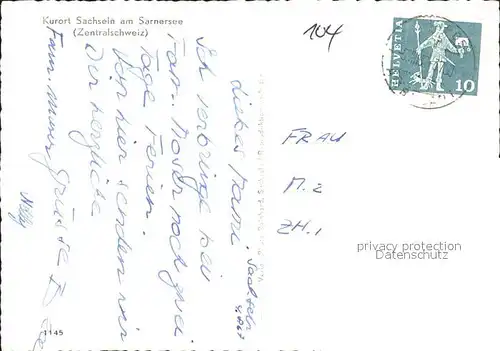 Kurort Sachseln am Sarnersee
(Zentralschweiz)
104
HELVETIA
10
Sachseln
Liebes
Ich verbringe bei
Fam. Moser noch zwei
Tage Ferien.
Von hier senden wir
Dir herzliche
Grüsse
Fam. Moser
Nelly
FRAU
M. Z
ZH. 1
privacy protection
Datenschutz
1145